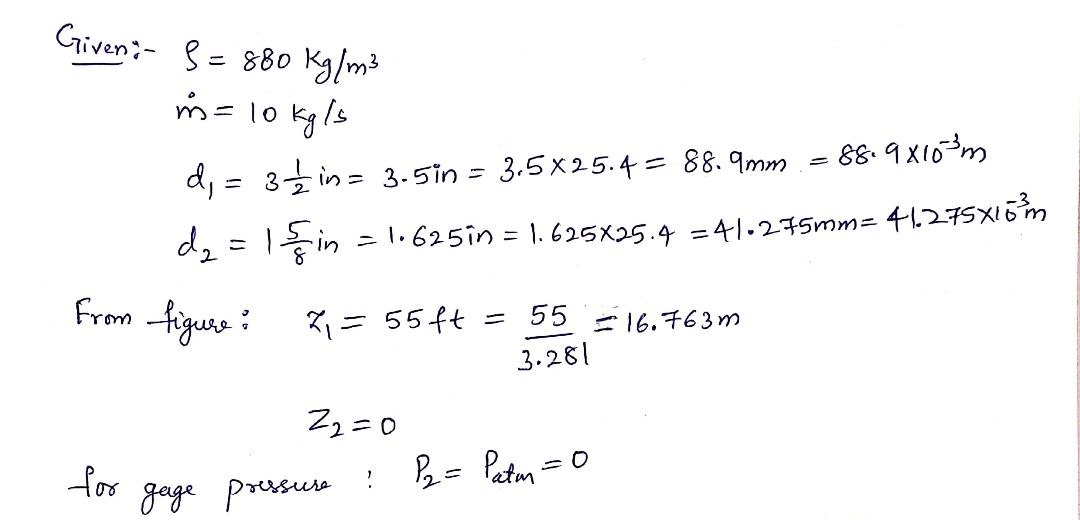 Given:- ρ = 880 Kg/m³
ṁ = 10 kg/s
d₁ = 3 1/2 in = 3.5in = 3.5×25.4 = 88.9mm = 88.9×10⁻³m
d₂ = 1 5/8 in = 1.625in = 1.625×25.4 = 41.275mm = 41.275×10⁻³m
From figure: z₁ = 55ft = 55/3.281 = 16.763m
Z₂ = 0
for gage pressure : P₂ = Patm = 0